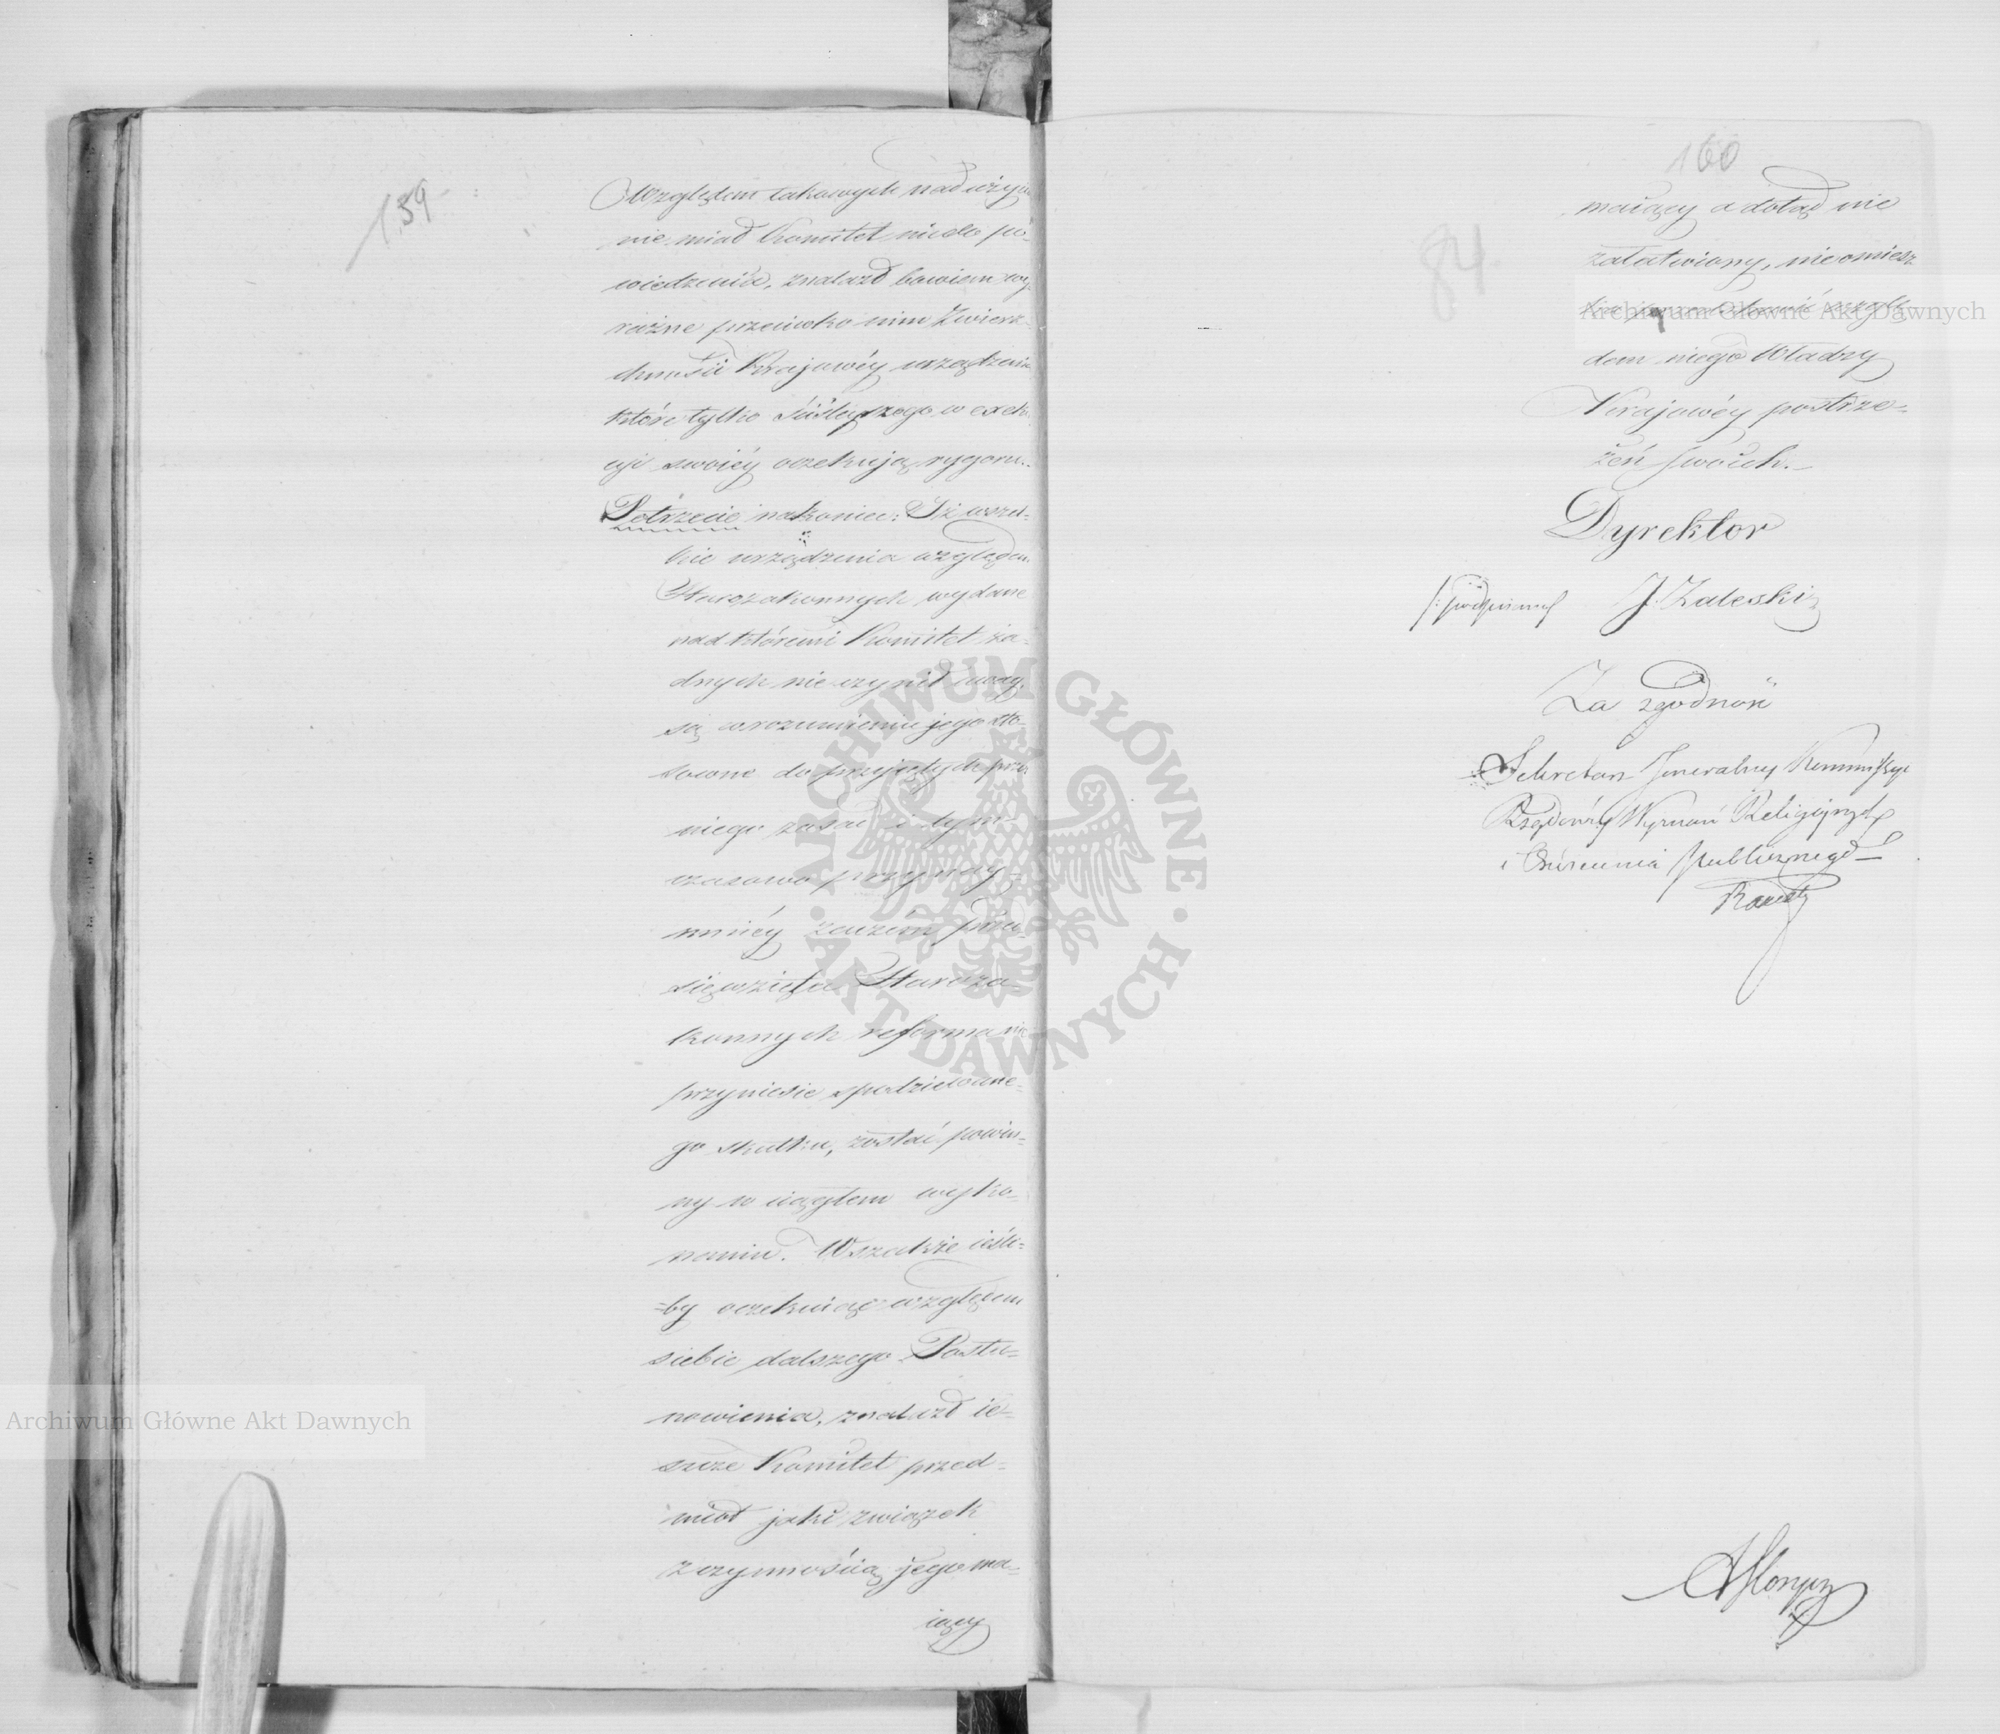 159
Względem takowych nadużyń
nie miał Komitet nic do po-
wiedzenia, znalazł bowiem wy-
raźne przeciwko nim Zwierz-
chności Krajowéy urządzenia
które tylko ściśleyszego w exeku-
cyi swoiéy oczekują rygoru.
Potrzecie nakoniec: Iż wszel-
kie urządzenia względem
Starozakonnych wydane
nad któremi Komitet ża-
dnych nie czynił uwag,
są w rozumieniu jego sto-
sowne do przyjętych przez
niego zasad i tym-
czasowo przynay-
mniéy zanim przed-
sięwzięta Staroza-
konnych reforma nie
przyniesie spodziewane-
go skutku, zostać powin-
ny w ciągłem wyko-
naniu. Wszakże ieśli-
=by oczekuiąc względem
siebie dalszego Posta-
nowienia, znalazł ie-
szcze Komitet przed-
miot jaki związek
z czynnością jego ma-
iący
160
84
maiący a dotąd nie
załatwiony, nieomiesz
wzglę
dem niego Władzy
Krajowéy postrze-
żeń swoich.
Dyrektor
/: podpisany J. Zaleski
Za zgodność
Sekretarz Jeneralny Kommissyi
Rządowéy Wyznań Religijnych
i Oświecenia publicznego
Archiwum Główne Akt Dawnych
Archiwum Główne Akt Dawnych
ARCHIWUM GŁÓWNE · AKT DAWNYCH ·